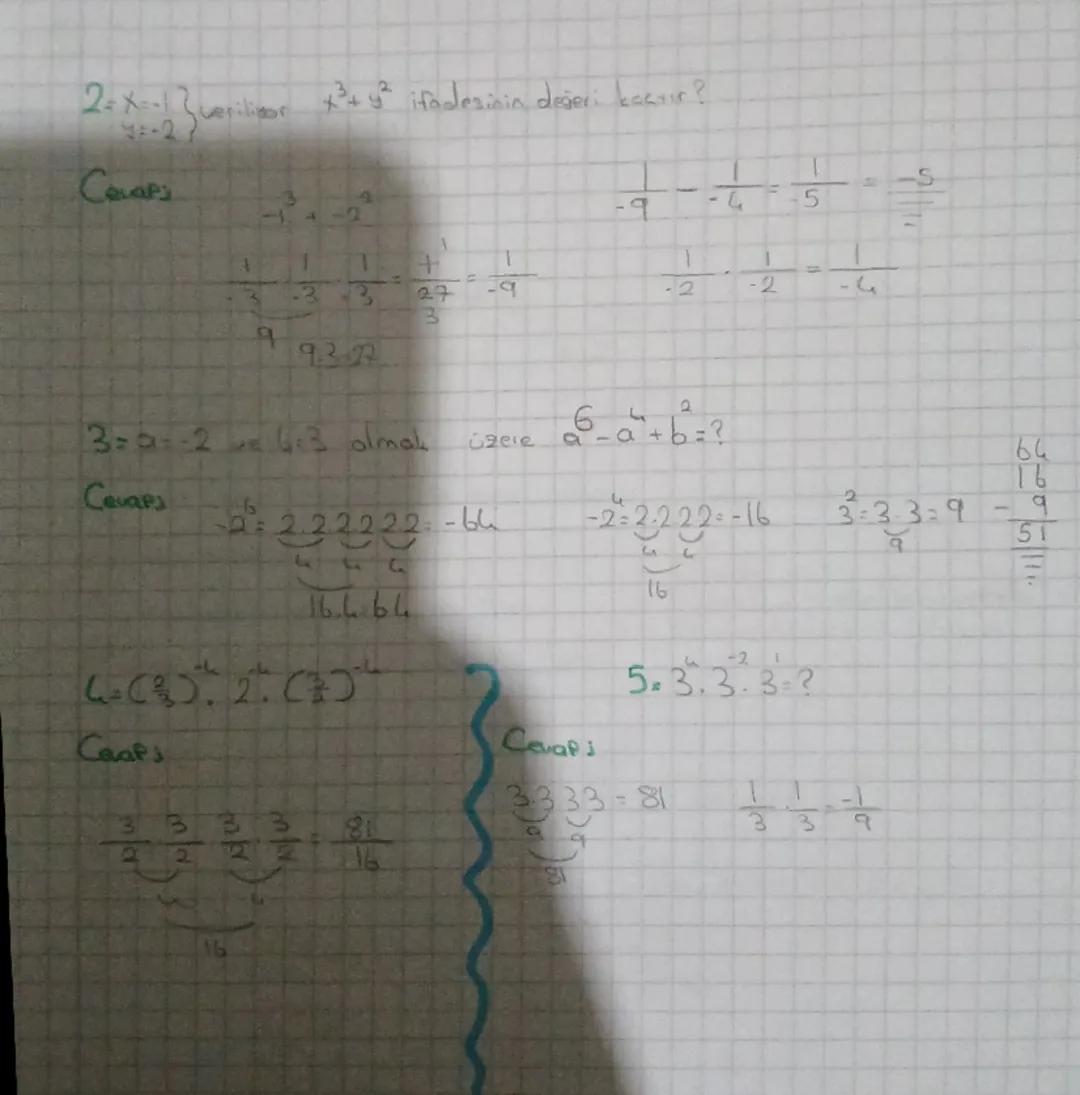 2= x=-1 } veriliyor x³+y² ifadesinin değeri kaçtır?
y=-2
Cevap;
-1³ + -2²
1/-9 - 1/-4 = 1/-5 = -5
1/-3 1/-3 1/-3 = 1/27 = 1/-9
1
3
1/-2 · 1/-2 = 1/-4
9
9.3=27
3= a=-2 ve b=3 olmak üzere a⁶-a⁴+b²=?
Cevap;
-2⁶= 2.2 2 2 2 2= -64
4 4 4
16.4 64
-2⁴=2.2 2 2=-16
4 4
16
3²=3.3=9
9
64
16
- 9
51
4=(2/3)⁻⁴ . 2⁻⁴ .
Cevap;
3/2 3/2 3/2 . 3/2 = 81/16
4 4
16
5= 3⁴. 3⁻². 3¹=?
Cevap;
3.3 3 3 = 81
9 9
81
1/3 · 1/3 = -1/9